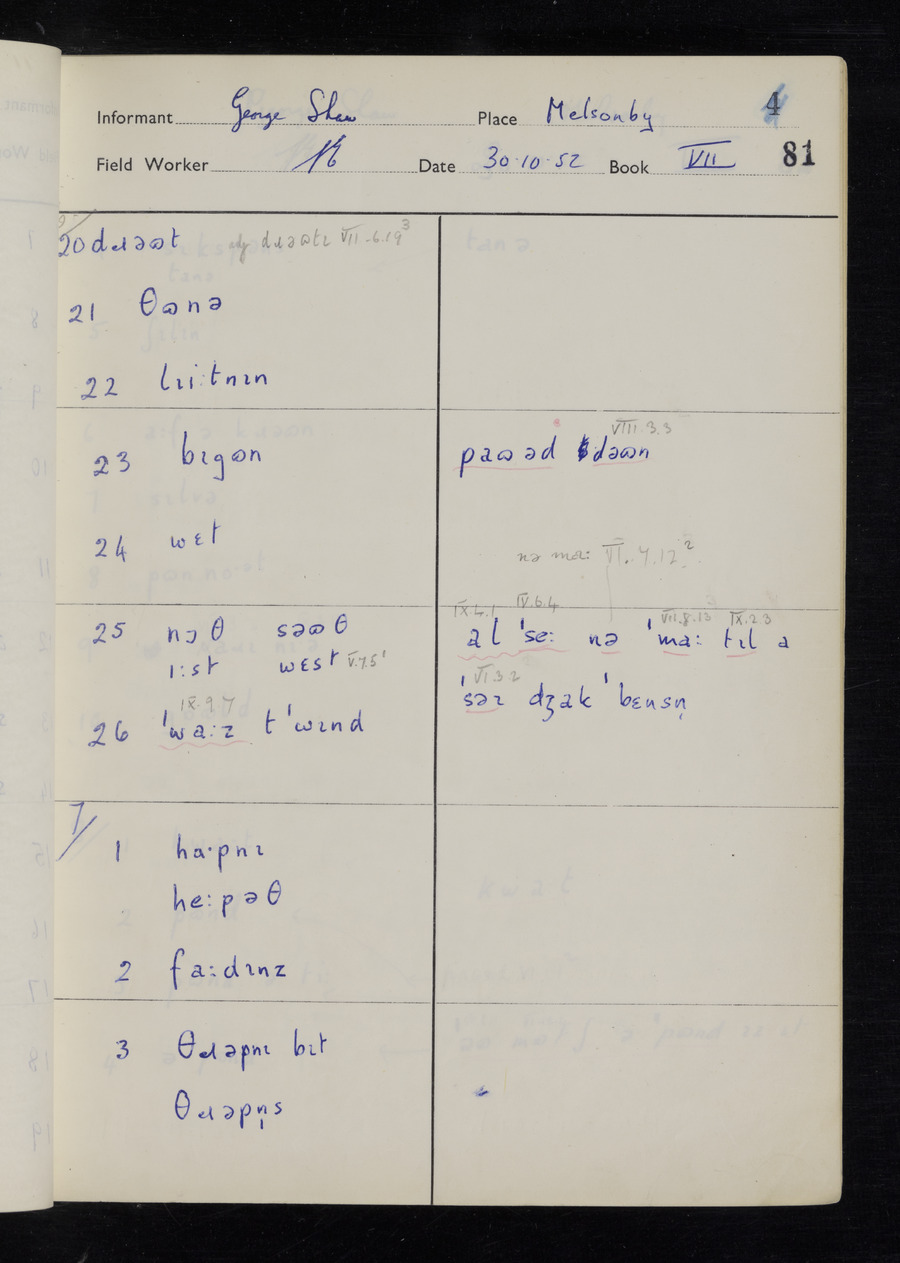 Informant George Shaw Place Melsonby 4
Field Worker Date 30·10·52 Book VII 81
20 dɹəɷt adj dɹəɷtɪ VII.6.19³
21 θɷnə
22 lɪi:tnɪn
VIII.3.3
23 bɪgɷn paɷəd dəɷn
24 wɛt
nə ma: VI.7.12²
IX.4.1 IV.6.4 VII.8.13 IX.2.3
25 nɔθ səɷθ al 'se: nə 'ma: tɪl a
ɪ:st wɛst V.7.5¹
VI.3.2
'səɪ dʒak 'bɛnsn̩
IX.9.7
26 'wa:z t 'wɪnd
7/
1 ha·pnɪ
he:pəθ
2 fa:dɪnz
3 θɹəpnɪ bɪt
θɹəpn̩s